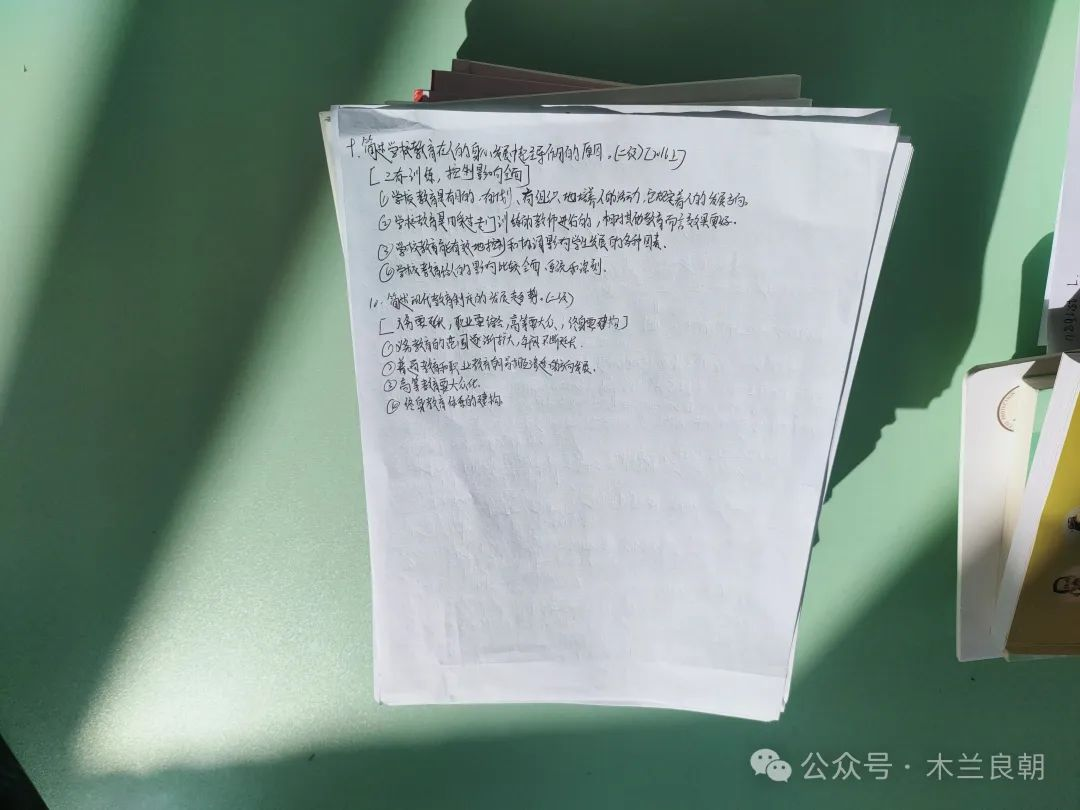 十.简述学校教育在人的身心发展中起主导作用的原因。(二级)[2016上]
[三有训练,控制影响全面]
①学校教育是有目的、有计划、有组织地培养人的活动,它规定着人的发展方向。
②学校教育是由受过专门训练的教师进行的,相对其他教育而言效果更好。
③学校教育能有效地控制和协调影响学生发展的各种因素。
④学校教育给人的影响比较全面、系统和深刻。
简述现代教育制度的发展趋势。(二级)
[义务要延,职业要综合,高等要大众,终身要建构]
①义务教育的范围逐渐扩大,年限不断延长.
②普通教育和职业教育朝着相互渗透的方向发展.
③高等教育要大众化.
④终身教育体系的建构.
公众号·木兰良朝